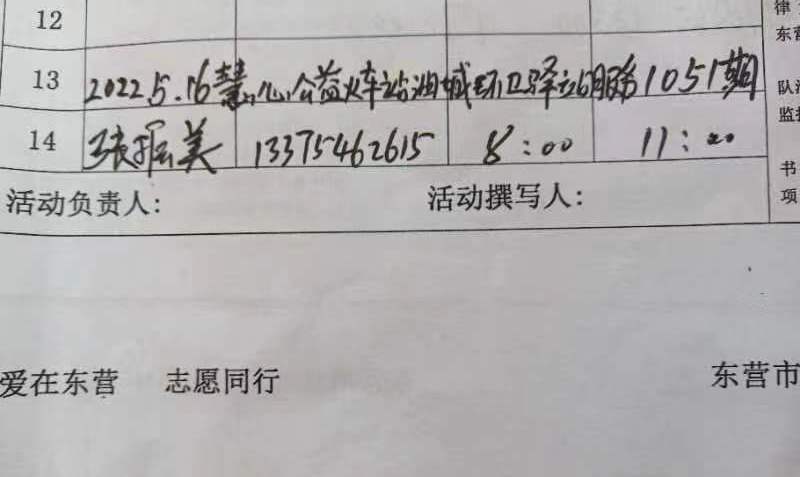 12
律
东营
13 2022.5.16慧心公益火车站油城环卫驿站服务1051期
队
监
14 张振美 13375462615 8:00 11:00
书
项
活动负责人: 活动撰写人:
爱在东营 志愿同行 东营市